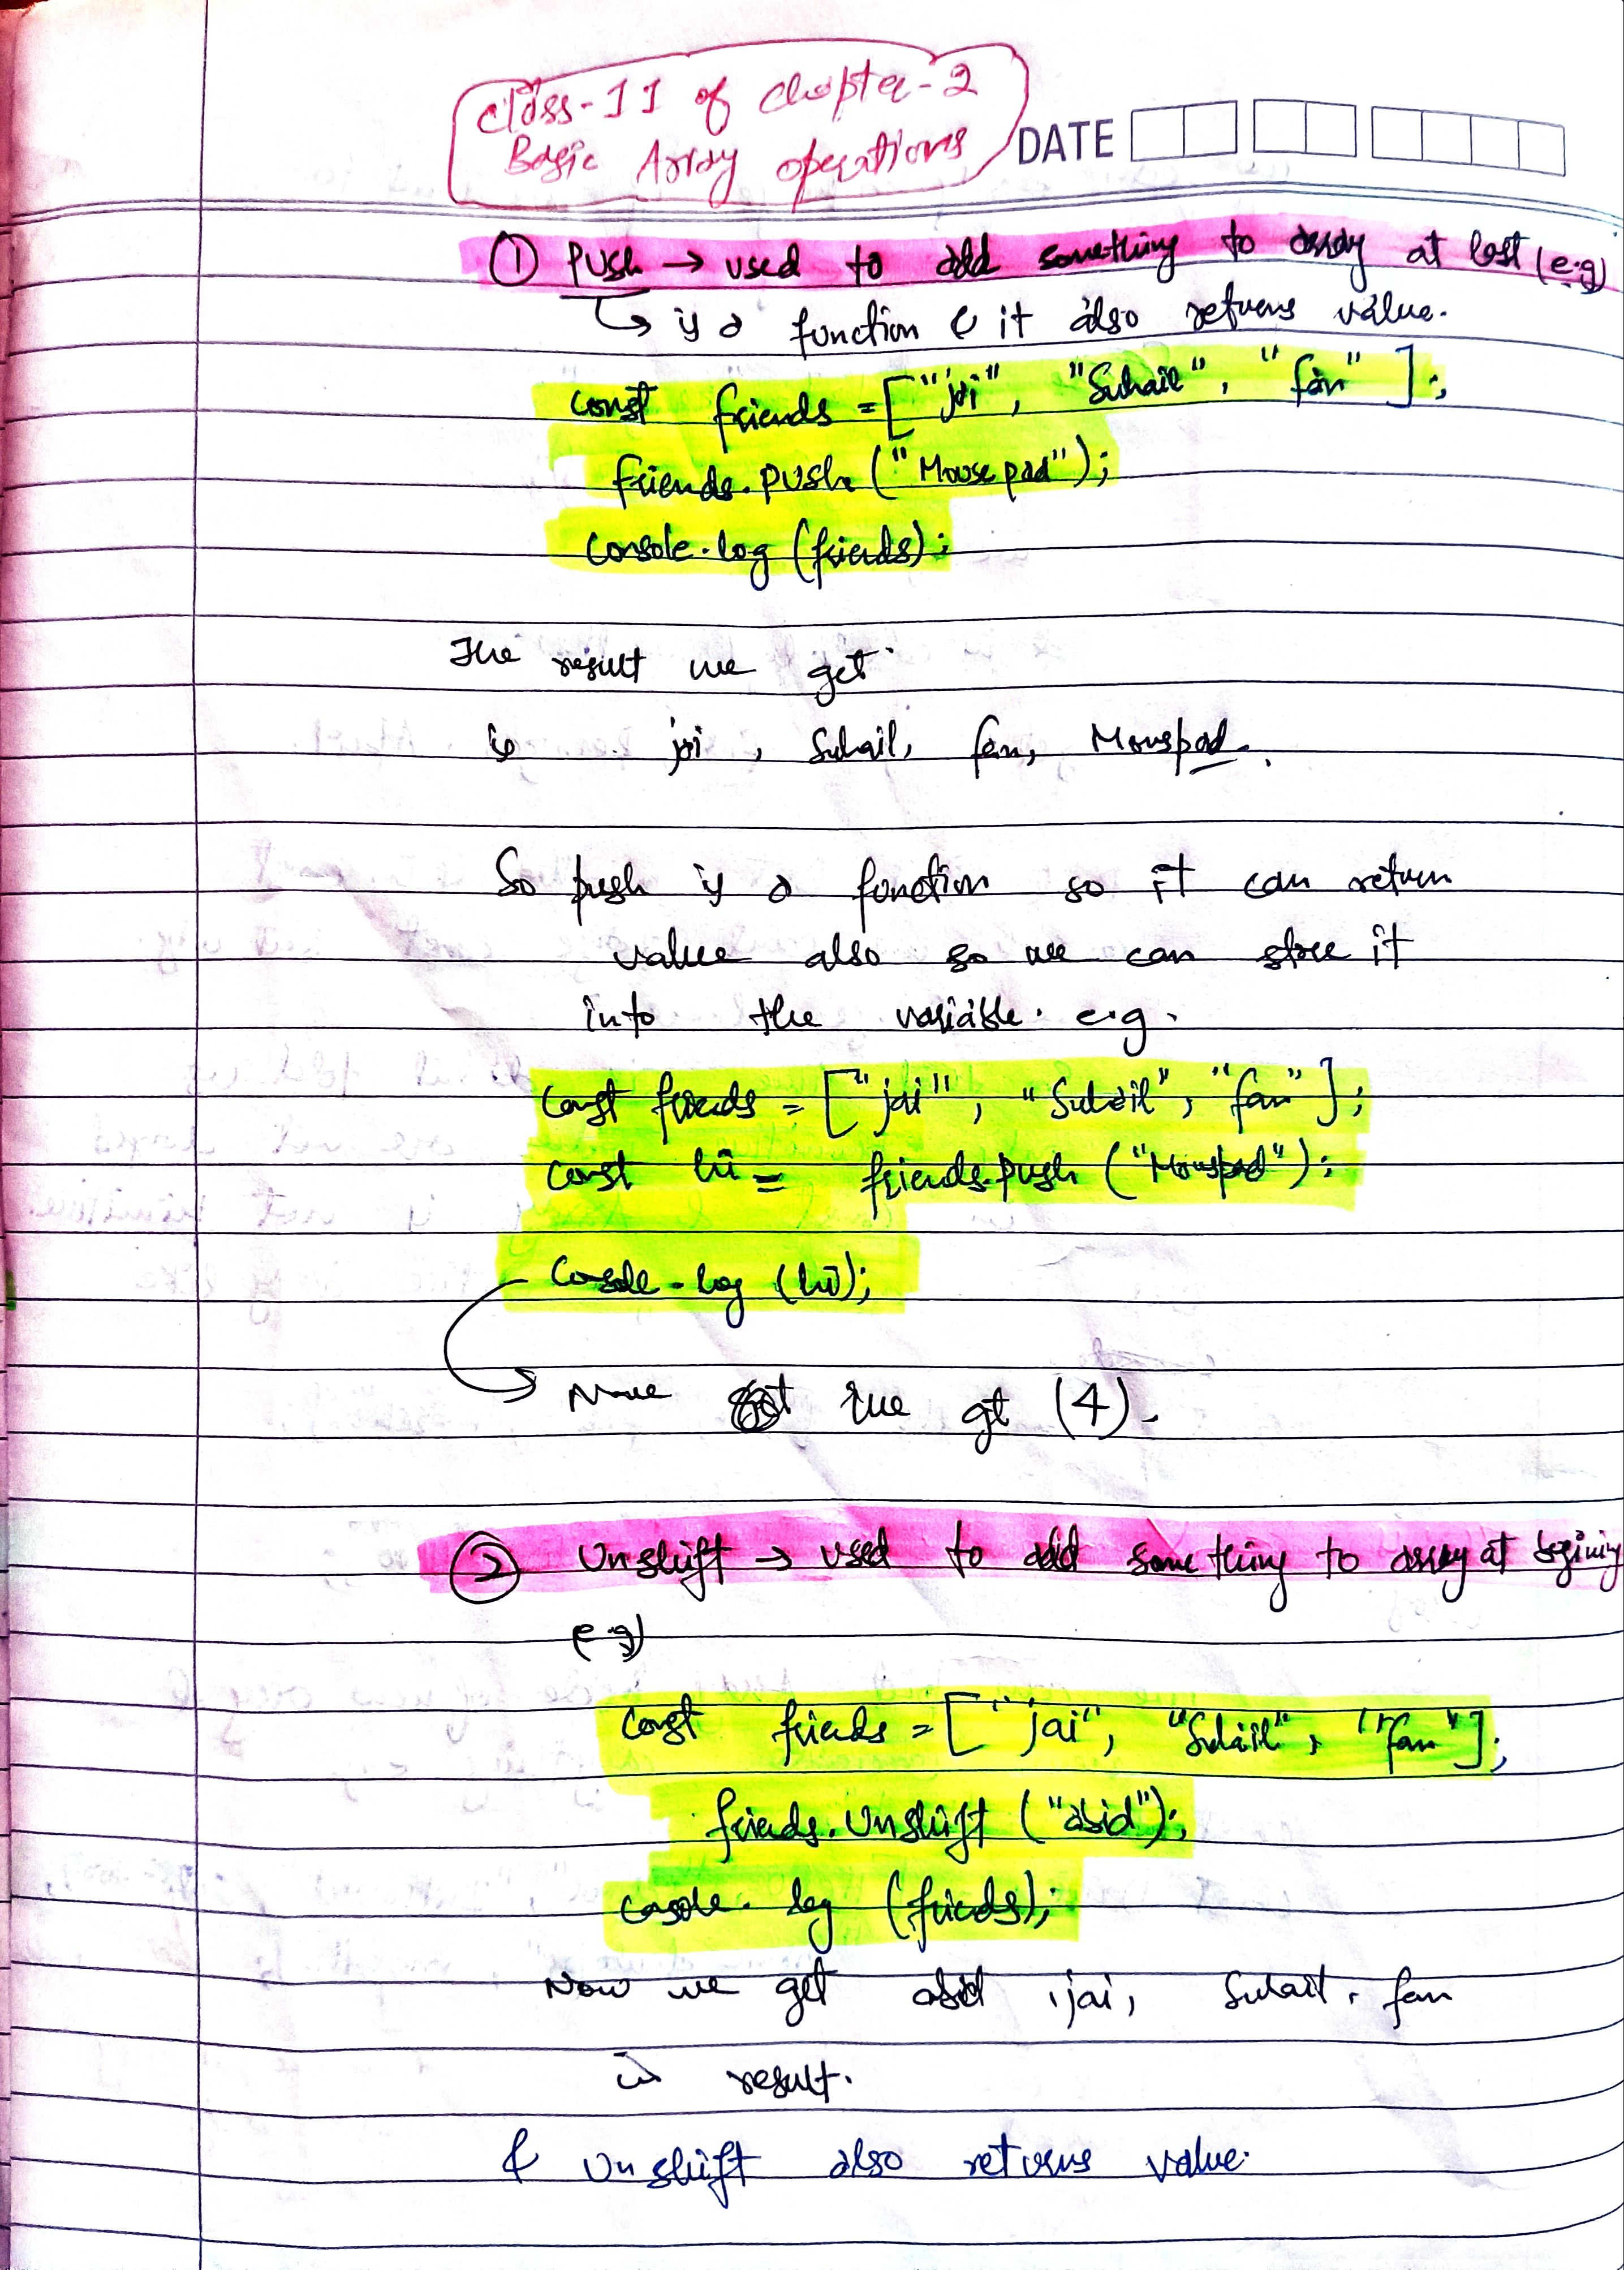 Class-11 of Chapter-2
Basic Array operations
DATE
① Push → used to add something to array at last (e.g)
↳ is a function & it also returns value.
const friends = ["jai", "Suhail", "fan"];
friends.push("Mousepad");
console.log(friends);
The result we get
is jai, Suhail, fan, Mouspad.
So push is a function so it can return
value also so we can store it
into the variable. e.g.
const friends = ["jai", "Suhail", "fan"];
const hii = friends.push("Mouspad");
Console.log(hii);
we get (4).
② Unshift → used to add something to array at begining
e.g)
const friends = ["jai", "Suhail", "fan"];
friends.Unshift("asid");
console.log(friends);
Now we get asid, jai, Suhail, fan
is result.
& Unshift also returns value.